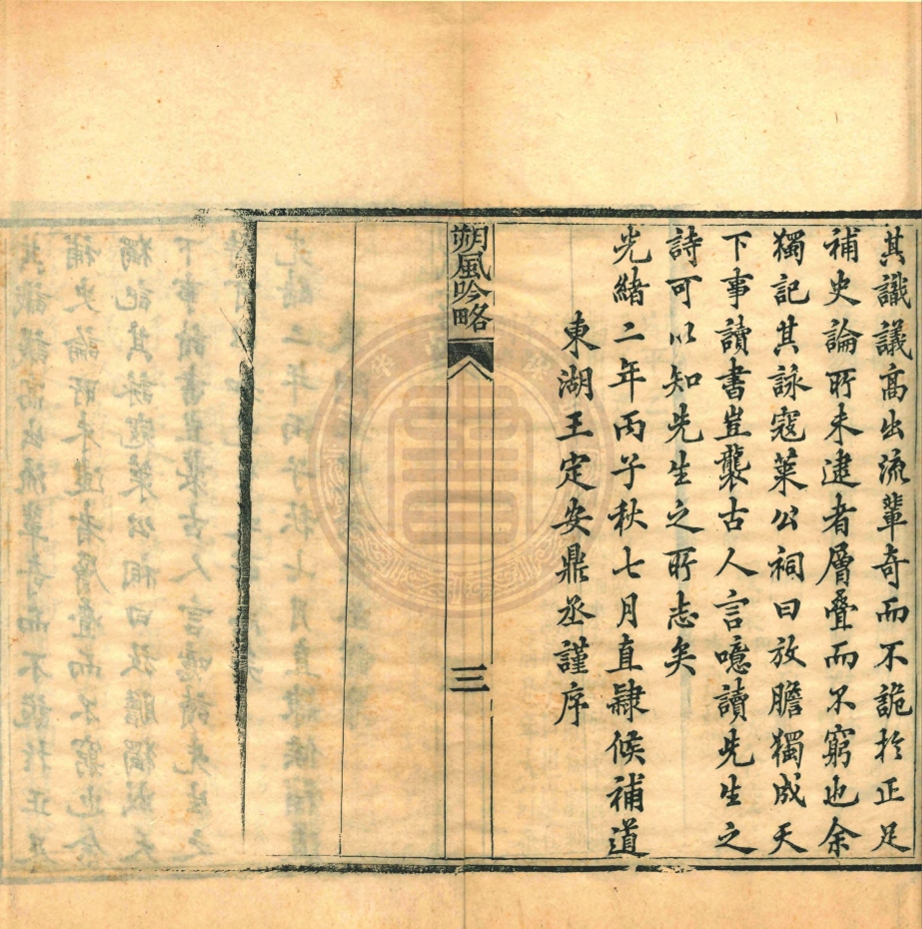 其識議高出流輩奇而不詭於正足
補史論所未逮者層疊而不窮也余
獨記其詠寇萊公祠曰放膽獨成天
下事讀書豈襲古人言噫讀先生之
詩可以知先生之所志矣
光緒二年丙子秋七月直隸候補道
東湖王定安鼎丞謹序
朔風吟略
三